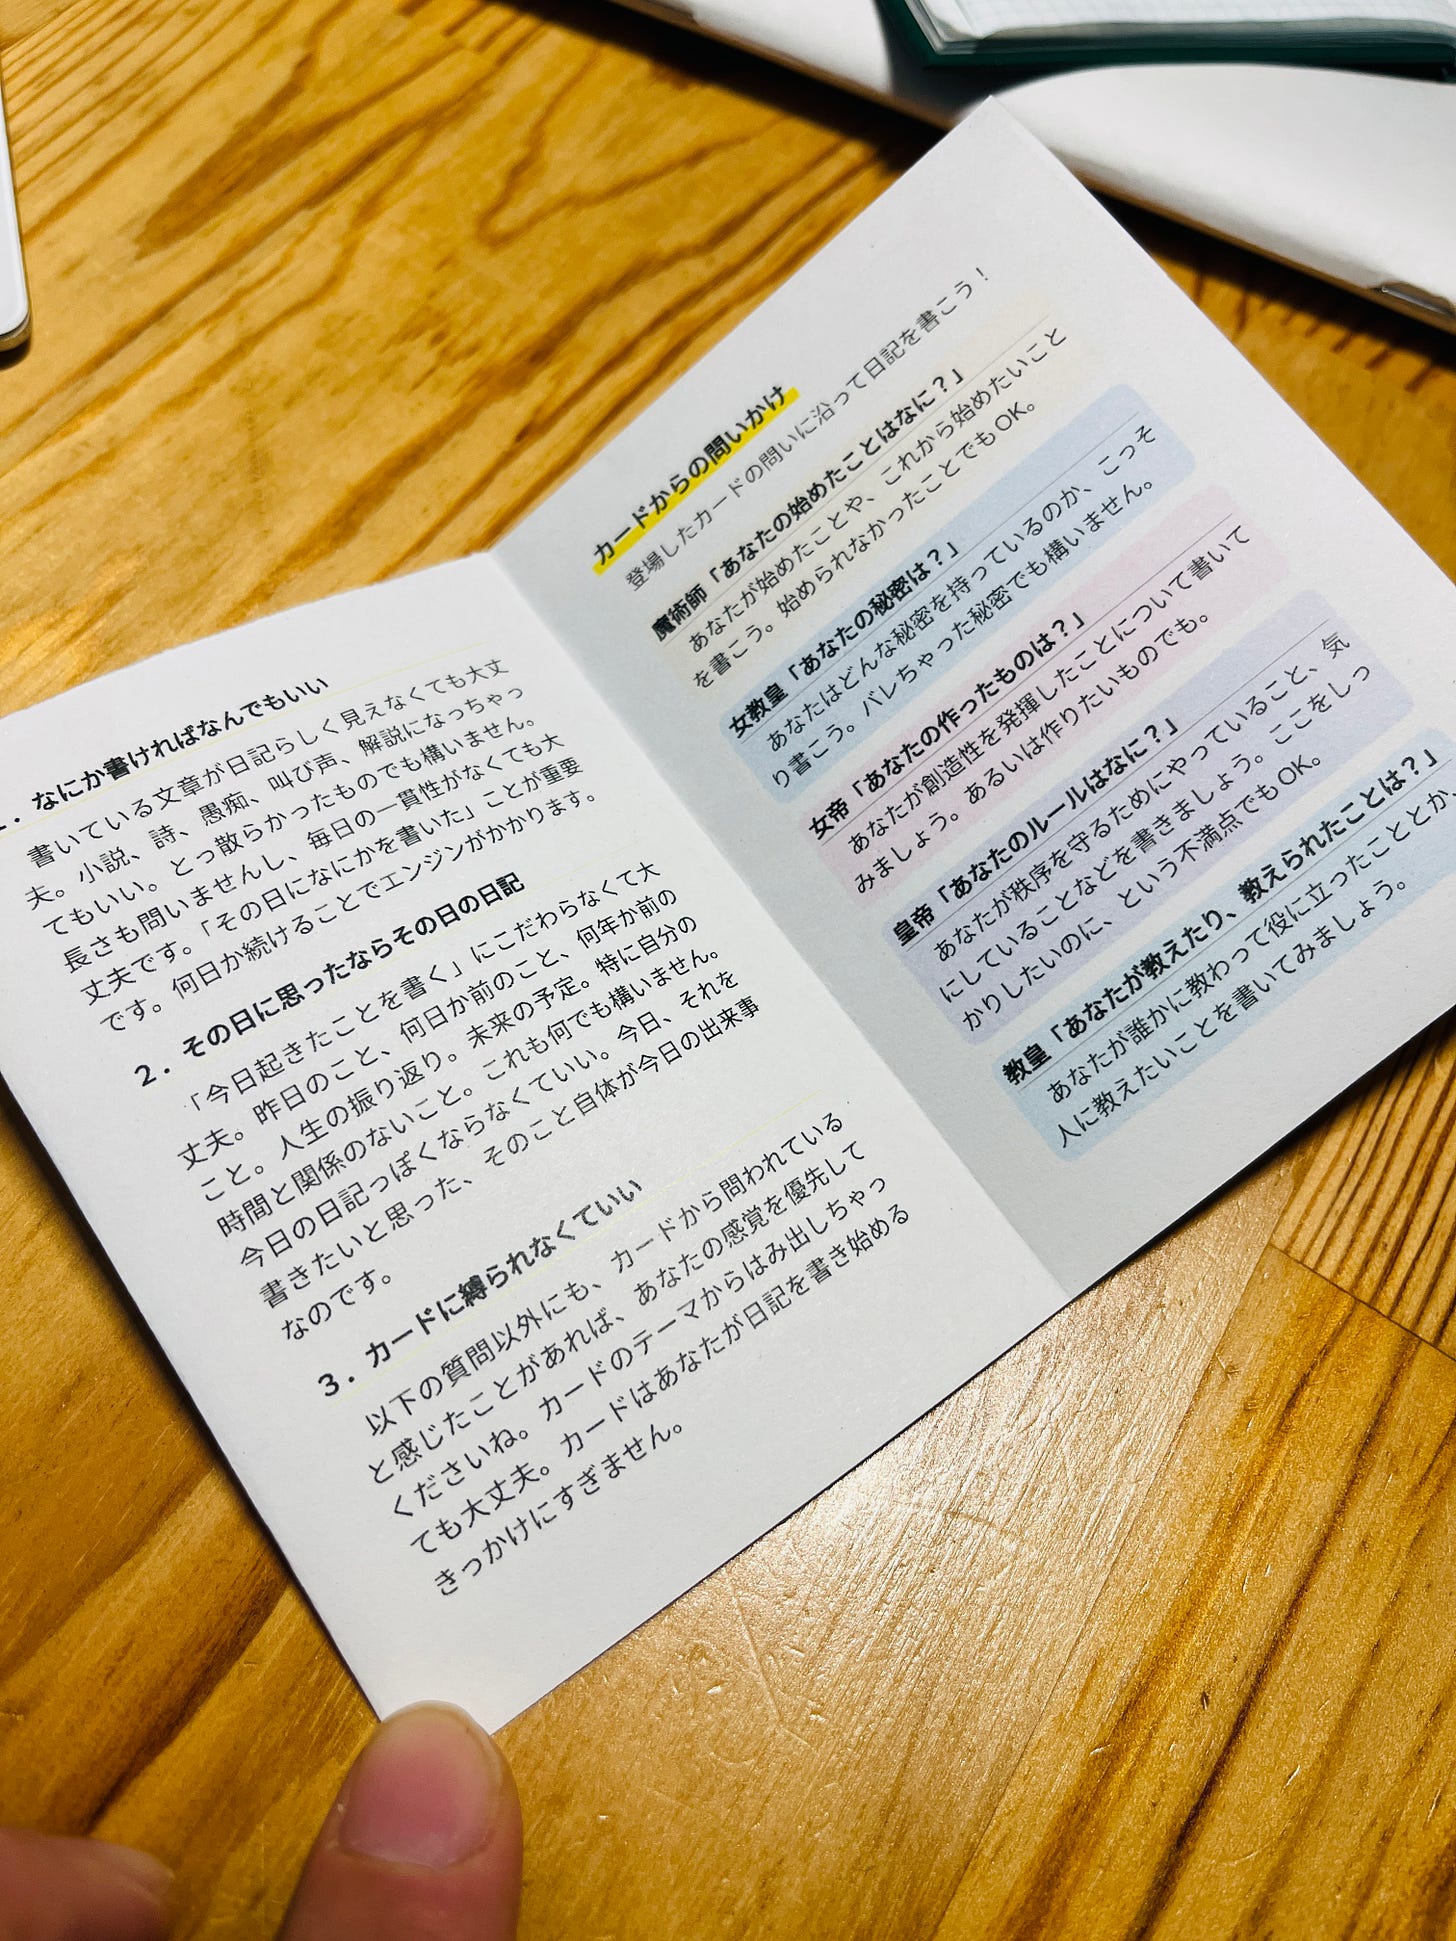 1．なにか書ければなんでもいい
書いている文章が日記らしく見えなくても大丈
夫。小説、詩、愚痴、叫び声、解説になっちゃっ
てもいい。とっ散らかったものでも構いません。
長さも問いませんし、毎日の一貫性がなくても大
丈夫です。「その日になにかを書いた」ことが重要
です。何日か続けることでエンジンがかかります。
2．その日に思ったならその日の日記
「今日起きたことを書く」にこだわらなくて大
丈夫。昨日のこと、何日か前のこと、何年か前の
こと。人生の振り返り。未来の予定。特に自分の
時間と関係のないこと。これも何でも構いません。
今日の日記っぽくならなくていい。今日、それを
書きたいと思った、そのこと自体が今日の出来事
なのです。
3．カードに縛られなくていい
以下の質問以外にも、カードから問われている
と感じたことがあれば、あなたの感覚を優先して
くださいね。カードのテーマからはみ出しちゃっ
ても大丈夫。カードはあなたが日記を書き始める
きっかけにすぎません。
カードからの問いかけ
登場したカードの問いに沿って日記を書こう！
魔術師「あなたの始めたことはなに？」
あなたが始めたことや、これから始めたいこと
を書こう。始められなかったことでもOK。
女教皇「あなたの秘密は？」
あなたはどんな秘密を持っているのか、こっそ
り書こう。バレちゃった秘密でも構いません。
女帝「あなたの作ったものは？」
あなたが創造性を発揮したことについて書いて
みましょう。あるいは作りたいものでも。
皇帝「あなたのルールはなに？」
あなたが秩序を守るためにやっていること、気
にしていることなどを書きましょう。ここをしっ
かりしたいのに、という不満点でもOK。
教皇「あなたが教えたり、教えられたことは？」
あなたが誰かに教わって役に立ったこととか、
人に教えたいことを書いてみましょう。